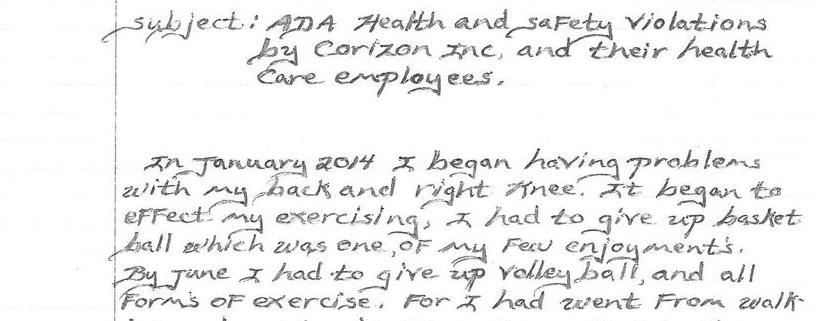 subject: ADA Health and safety violations
by Corizon Inc, and their health
Care employees.
In January 2014 I began having problems
with my back and right Knee. It began to
effect my exercising, I had to give up basket
ball which was one of my few enjoyments.
By June I had to give up volley ball, and all
forms of exercise. For I had went from walk-